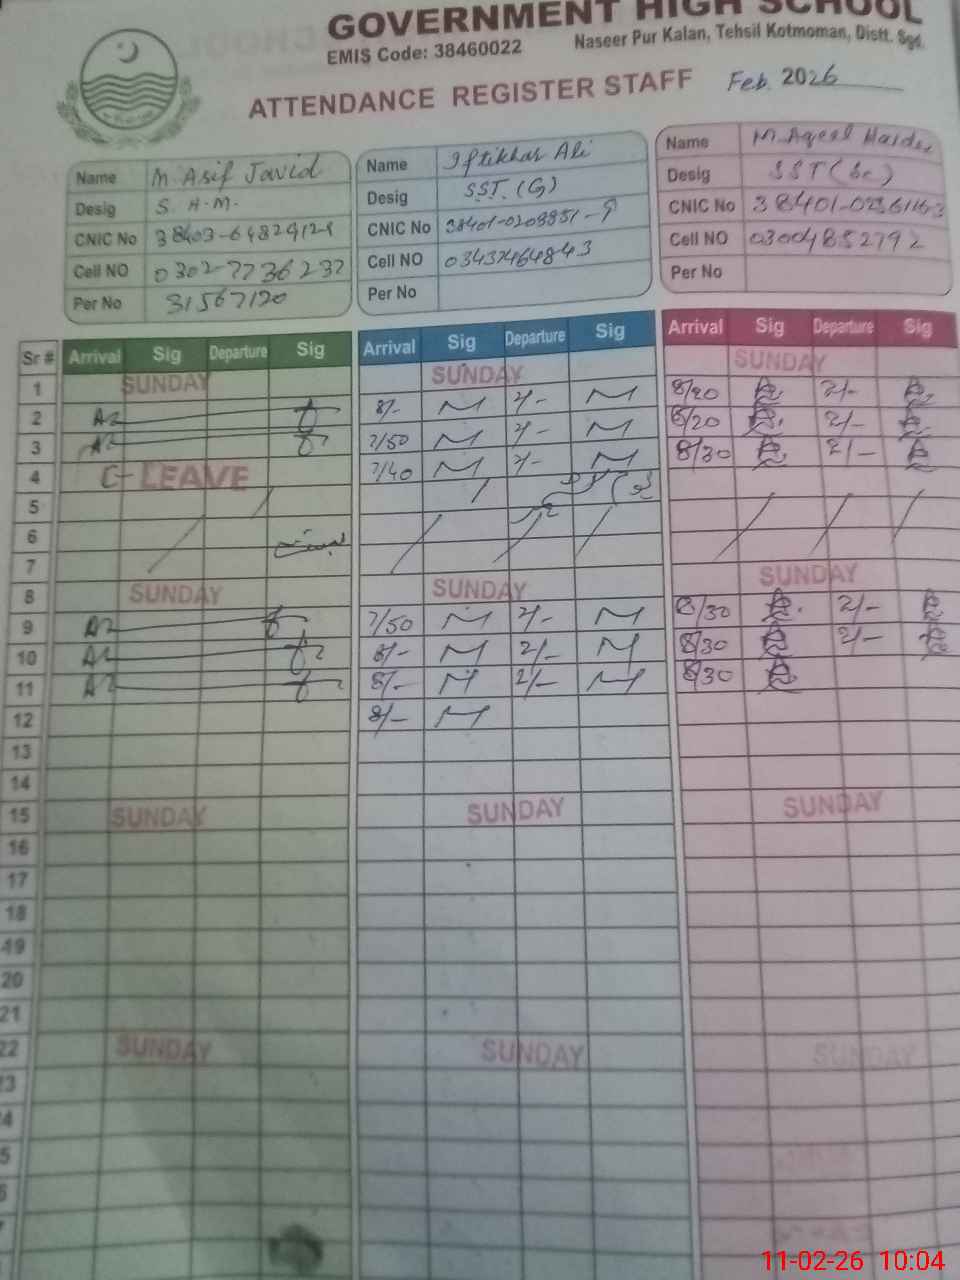 GOVERNMENT HIGH SCHOOL
EMIS Code: 38460022 Naseer Pur Kalan, Tehsil Kotmoman, Distt. Sgd.
ATTENDANCE REGISTER STAFF Feb. 2026
Name M. Asif Javid
Desig S. H. M.
CNIC No
Cell NO 0302-7736237
Per No 31567120
Name Iftikhar Ali
Desig SST. (G)
CNIC No 38401-0209851-9
Cell NO 03437464843
Per No
Name M. Aqeel Haider
Desig SST (Sc)
CNIC No
Cell NO 03004852792
Per No
Sr # Arrival Sig Departure Sig Arrival Sig Departure Sig Arrival Sig Departure Sig
1 SUNDAY SUNDAY SUNDAY
2 8/- 2/- 8/20 2/-
3 7/50 2/- 8/20 2/-
4 C-LEAVE 7/40 2/- 8/30 2/-
5
6
7
8 SUNDAY SUNDAY SUNDAY
9 7/50 2/- 8/30 2/-
10 8/- 2/- 8/30 2/-
11 8/- 2/- 8/30
12 8/-
13
14
15 SUNDAY SUNDAY SUNDAY
16
17
18
19
20
21
22 SUNDAY SUNDAY SUNDAY
11-02-26 10:04